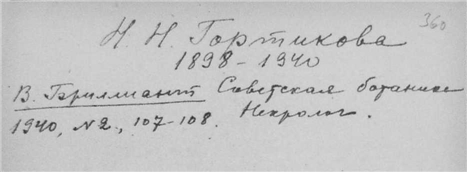 Н. Н. Гортикова 360
1898 - 1940
В. Бриллиант Советская ботаника
1940, №2, 107-108. Некролог.